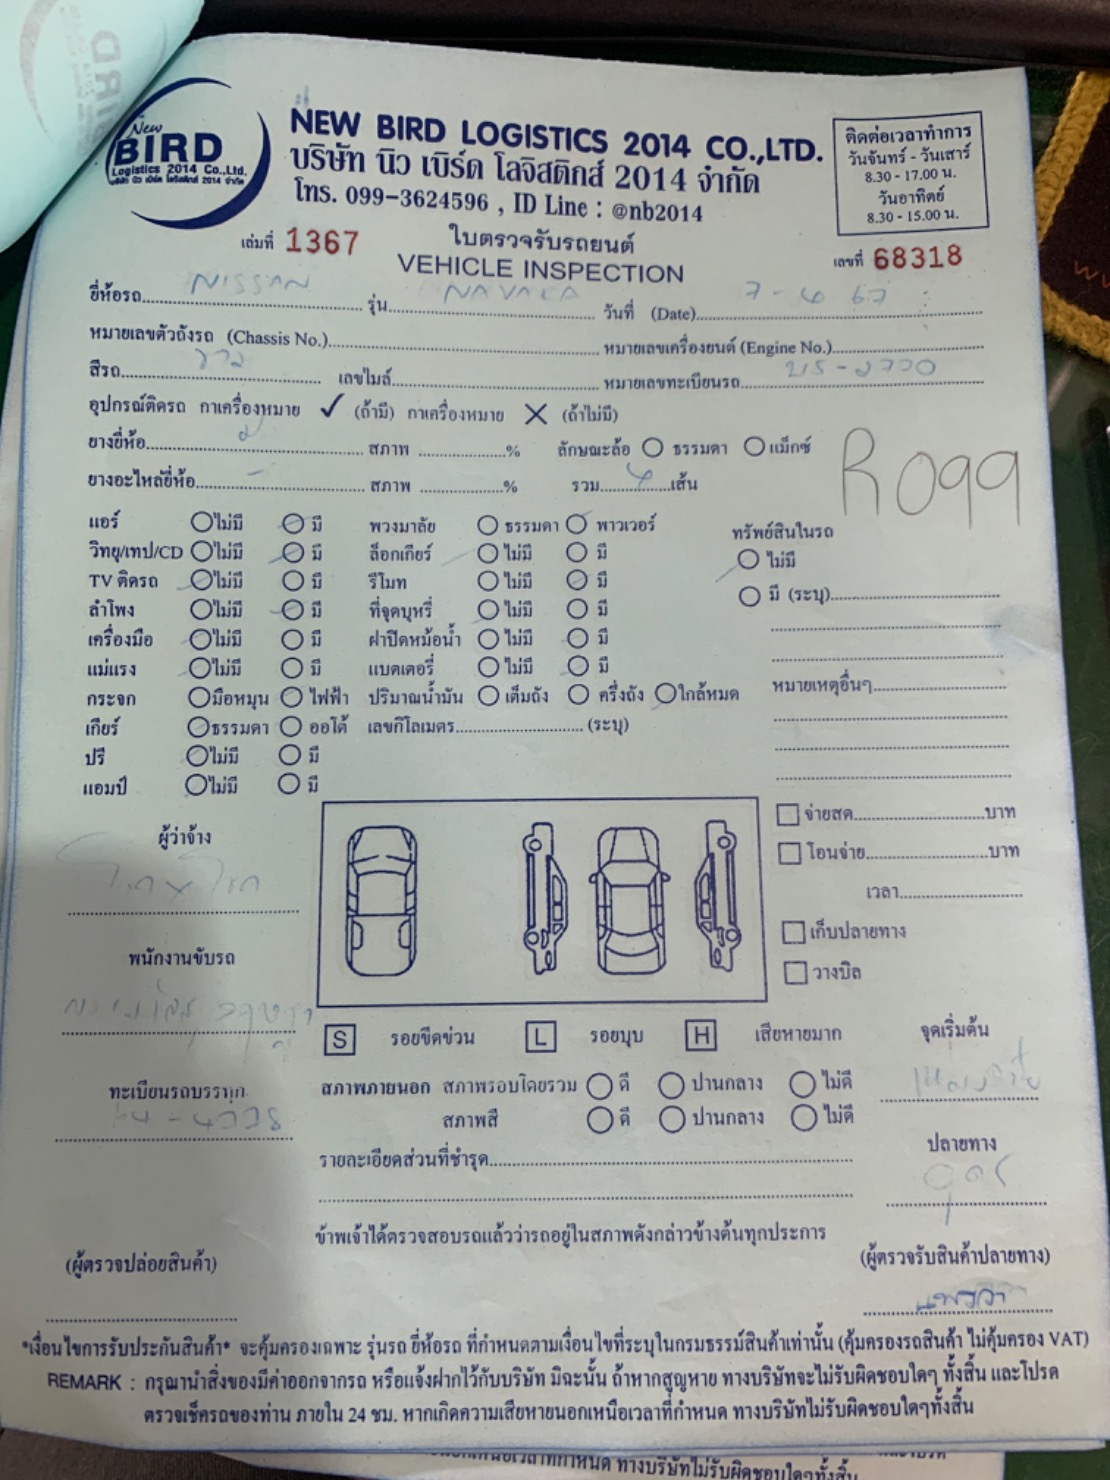 New
BIRD
Logistics 2014 Co.,Ltd.
บริษัท นิว เบิร์ด โลจิสติกส์ 2014 จำกัด
NEW BIRD LOGISTICS 2014 CO.,LTD.
บริษัท นิว เบิร์ด โลจิสติกส์ 2014 จำกัด
โทร. 099-3624596 , ID Line : @nb2014
ติดต่อเวลาทำการ
วันจันทร์ - วันเสาร์
8.30 - 17.00 น.
วันอาทิตย์
8.30 - 15.00 น.
เล่มที่ 1367
ใบตรวจรับรถยนต์
VEHICLE INSPECTION
เลขที่ 68318
ยี่ห้อรถ NISSAN รุ่น NAVARA วันที่ (Date) 7-4 67
หมายเลขตัวถังรถ (Chassis No.) หมายเลขเครื่องยนต์ (Engine No.)
สีรถ ขาว เลขไมล์ หมายเลขทะเบียนรถ
อุปกรณ์ติดรถ กาเครื่องหมาย ✓ (ถ้ามี) กาเครื่องหมาย ✕ (ถ้าไม่มี)
ยางยี่ห้อ สภาพ % ลักษณะล้อ ธรรมดา แม็กซ์
ยางอะไหล่ยี่ห้อ - สภาพ % รวม 4 เส้น
R099
แอร์ ไม่มี มี พวงมาลัย ธรรมดา พาวเวอร์ ทรัพย์สินในรถ
วิทยุ/เทป/CD ไม่มี มี ล็อกเกียร์ ไม่มี มี ไม่มี
TV ติดรถ ไม่มี มี รีโมท ไม่มี มี มี (ระบุ)
ลำโพง ไม่มี มี ที่จุดบุหรี่ ไม่มี มี
เครื่องมือ ไม่มี มี ฝาปิดหม้อน้ำ ไม่มี มี
แม่แรง ไม่มี มี แบตเตอรี่ ไม่มี มี หมายเหตุอื่นๆ
กระจก มือหมุน ไฟฟ้า ปริมาณน้ำมัน เต็มถัง ครึ่งถัง ใกล้หมด
เกียร์ ธรรมดา ออโต้ เลขกิโลเมตร (ระบุ)
ปรี ไม่มี มี
แอมป์ ไม่มี มี
จ่ายสด บาท
โอนจ่าย บาท
เวลา
เก็บปลายทาง
วางบิล
ผู้ว่าจ้าง
พนักงานขับรถ
ทะเบียนรถบรรทุก
S รอยขีดข่วน L รอยบุบ H เสียหายมาก
จุดเริ่มต้น
สภาพภายนอก สภาพรอบโดยรวม ดี ปานกลาง ไม่ดี
สภาพสี ดี ปานกลาง ไม่ดี
ปลายทาง
อุดร
รายละเอียดส่วนที่ชำรุด
ข้าพเจ้าได้ตรวจสอบรถแล้วว่ารถอยู่ในสภาพดังกล่าวข้างต้นทุกประการ
(ผู้ตรวจปล่อยสินค้า)
(ผู้ตรวจรับสินค้าปลายทาง)
แพรวา
*เงื่อนไขการรับประกันสินค้า* จะคุ้มครองเฉพาะ รุ่นรถ ยี่ห้อรถ ที่กำหนดตามเงื่อนไขที่ระบุในกรมธรรม์สินค้าเท่านั้น (คุ้มครองรถสินค้า ไม่คุ้มครอง VAT)
REMARK : กรุณานำสิ่งของมีค่าออกจากรถ หรือแจ้งฝากไว้กับบริษัท มิฉะนั้น ถ้าหากสูญหาย ทางบริษัทจะไม่รับผิดชอบใดๆ ทั้งสิ้น และโปรด
ตรวจเช็ครถของท่าน ภายใน 24 ชม. หากเกิดความเสียหายนอกเหนือเวลาที่กำหนด ทางบริษัทไม่รับผิดชอบใดๆทั้งสิ้น
ทางบริษัทไม่รับผิดชอบใดๆทั้งสิ้น